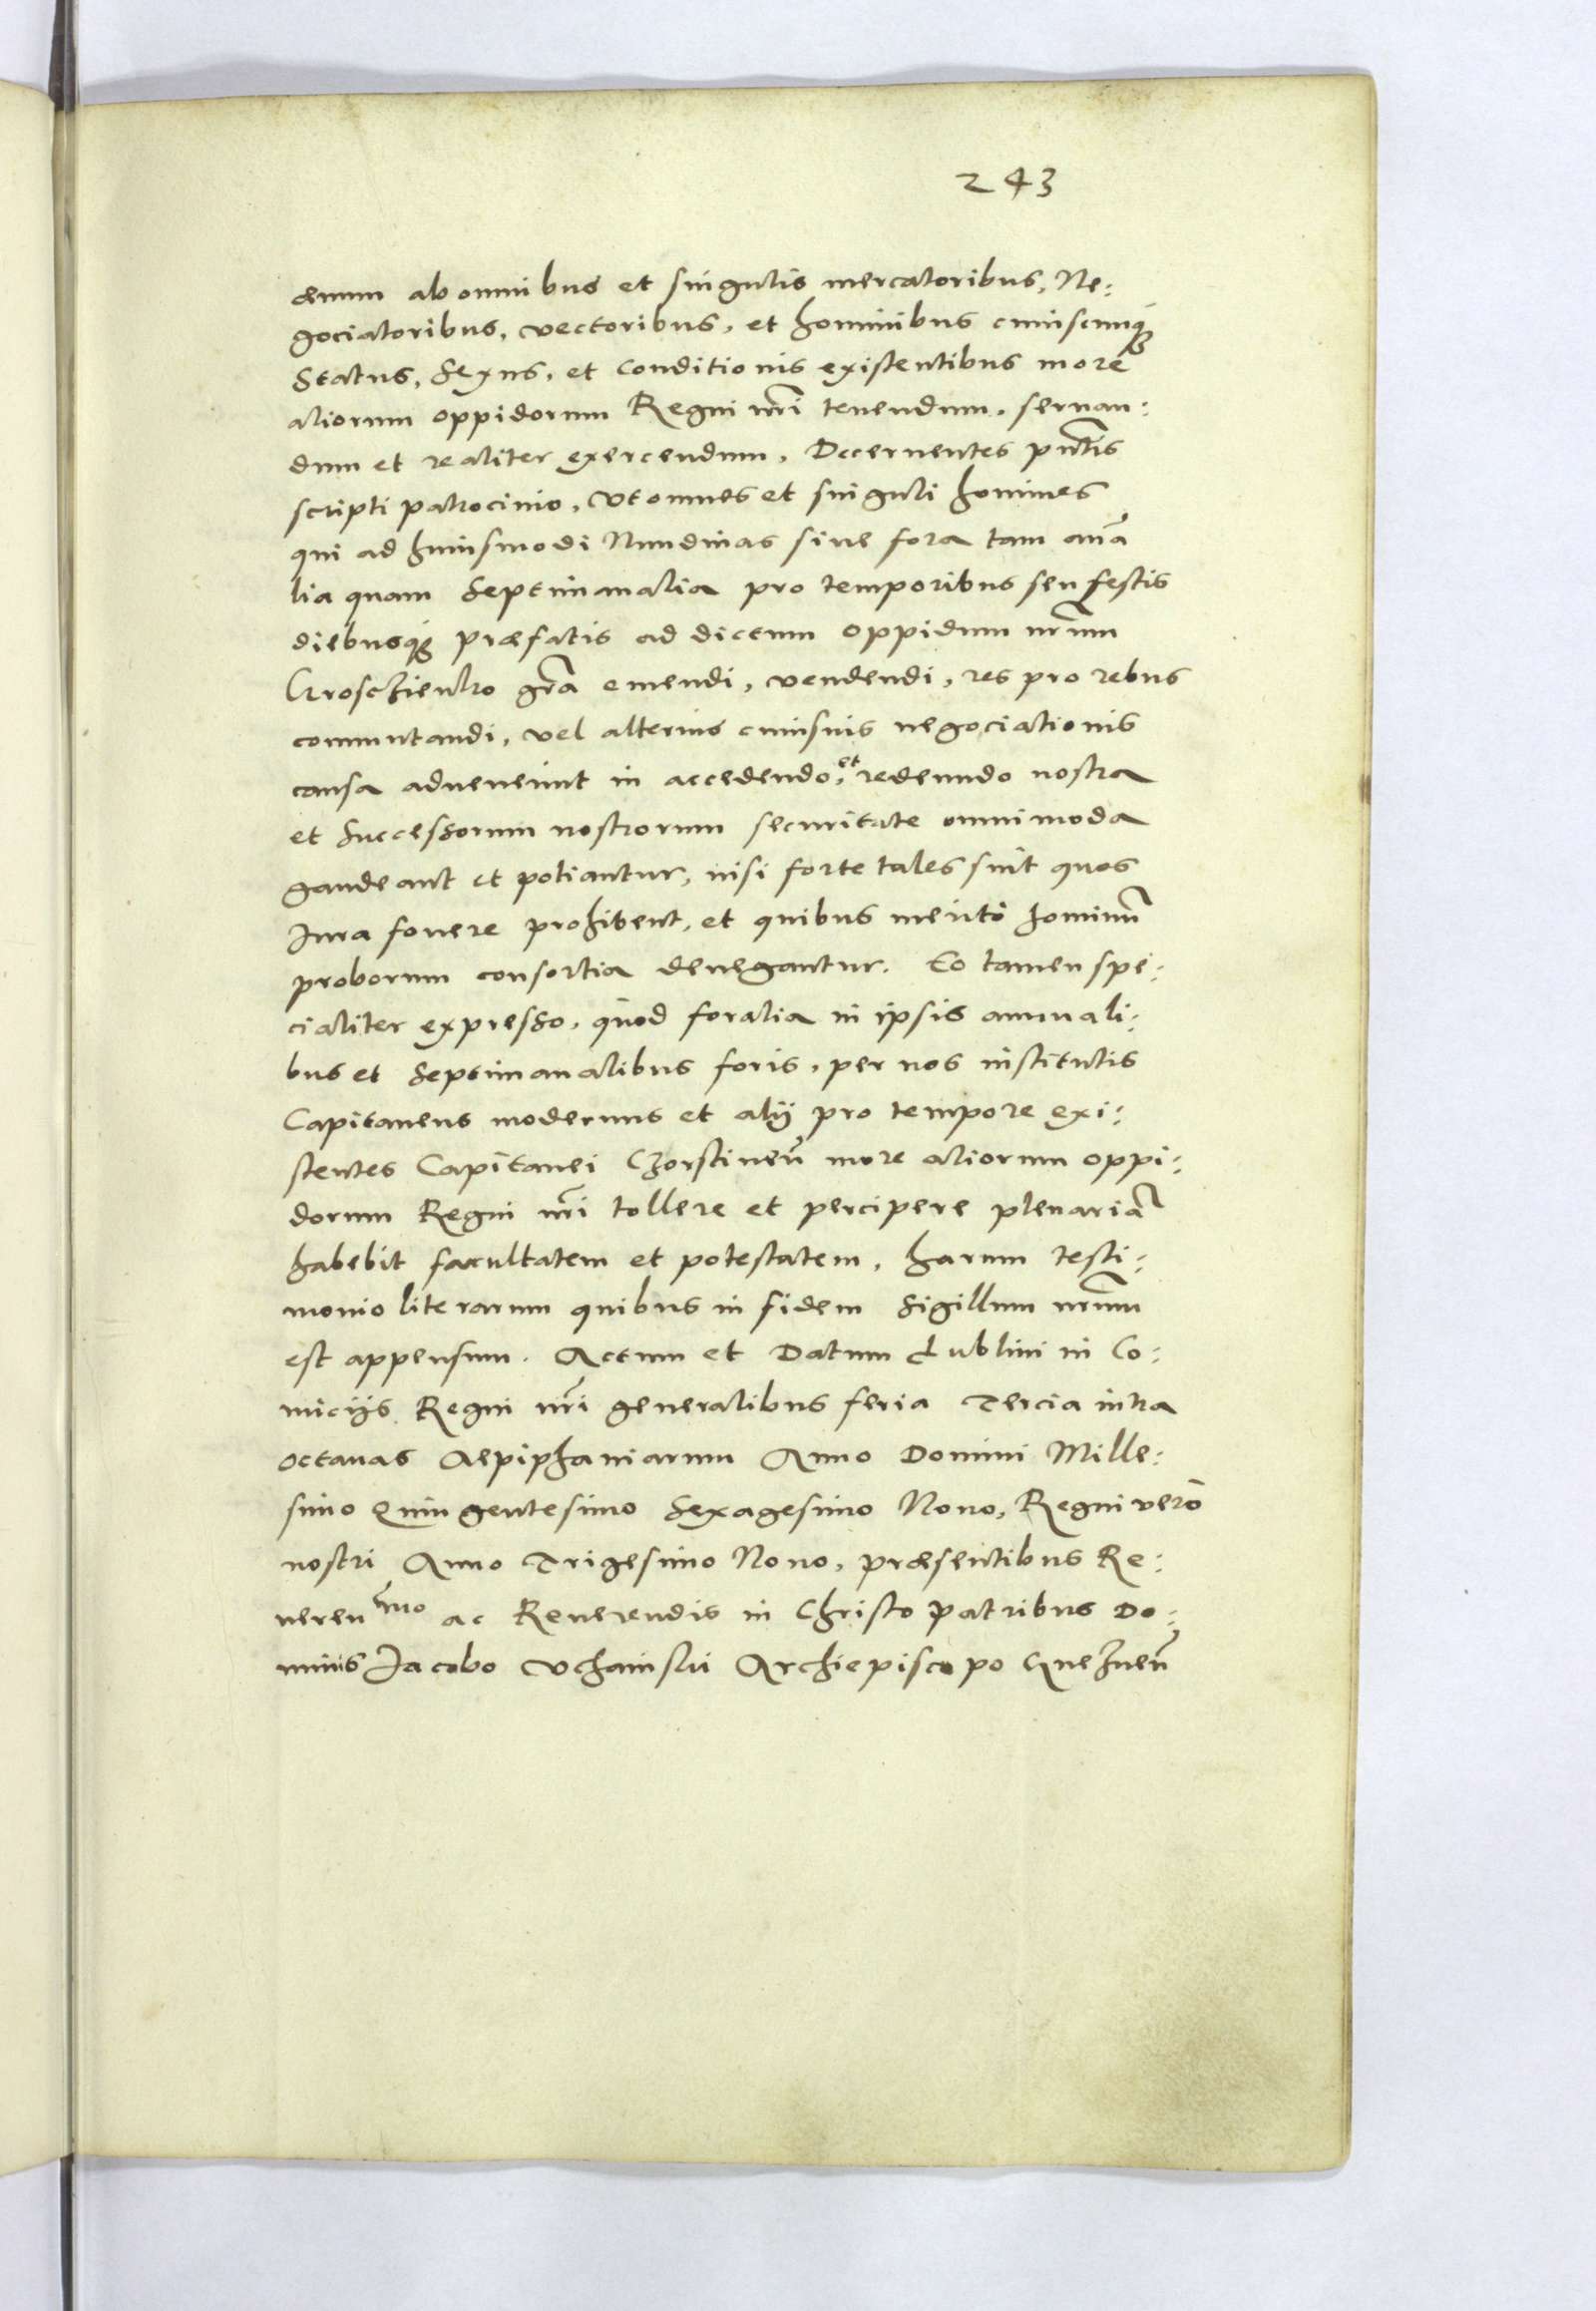 243
æuum ab omnibus et singulis mercatoribus, Ne:
gociatoribus, vectoribus, et hominibus cuiuscunq́ꝫ
Status, Sexus, et conditionis existentibus more
aliorum oppidorum Regni nr̃i tenendum, seruan:
dum et realiter exercendum, Decernentes pñtis
scripti patrocinio, Vt omnes et singuli homines
qui ad huiusmodi Nundinas siue fora tam anã
lia quam Septimanalia pro temporibus seu festis
diebusq́ꝫ præfatis ad dictum oppidum nr̃um
gr̃a emendi, vendendi, res pro rebus
comutandi, vel alterius cuiusuis negociationis
causa aduenerint in accedendo, et redeundo nostra
et Successorum nostrorum securitate omnimoda
gaudeant et potiantur, nisi forte tales sint quos
Iura fouere prohibent, et quibus merito hominũ
proborum consortia denegantur. Eo tamen spe:
cialiter expresso, quod foralia in ipsis annuali:
bus et Septimanalibus foris, per nos institutis
Capitaneus modernus et alij pro tempore exi:
stentes Capitanei Chorstineñ more aliorum oppi:
dorum Regni nr̃i tollere et percipere plenariã
habebit facultatem et potestatem, harum testi:
monio literarum quibus in fidem Sigillum nr̃um
est appensum. Actum et Datum Lublini in Co:
micijs Regni nr̃i generalibus feria Tercia intra
octauas Aepiphaniarum Anno Domini Mille:
simo Quingentesimo Sexagesimo Nono, Regni vero
nostri Anno Trigesimo Nono, præsentibus Re:
ueren̄mo ac Reuerendis in Christo patribus Do:
minis Jacobo Vchainski Archiepiscopo Gnezneñ